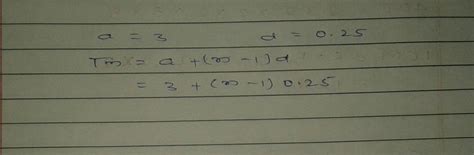 a = 3 d = 0.25
Tn = a + (n - 1) d
= 3 + (n - 1) 0.25